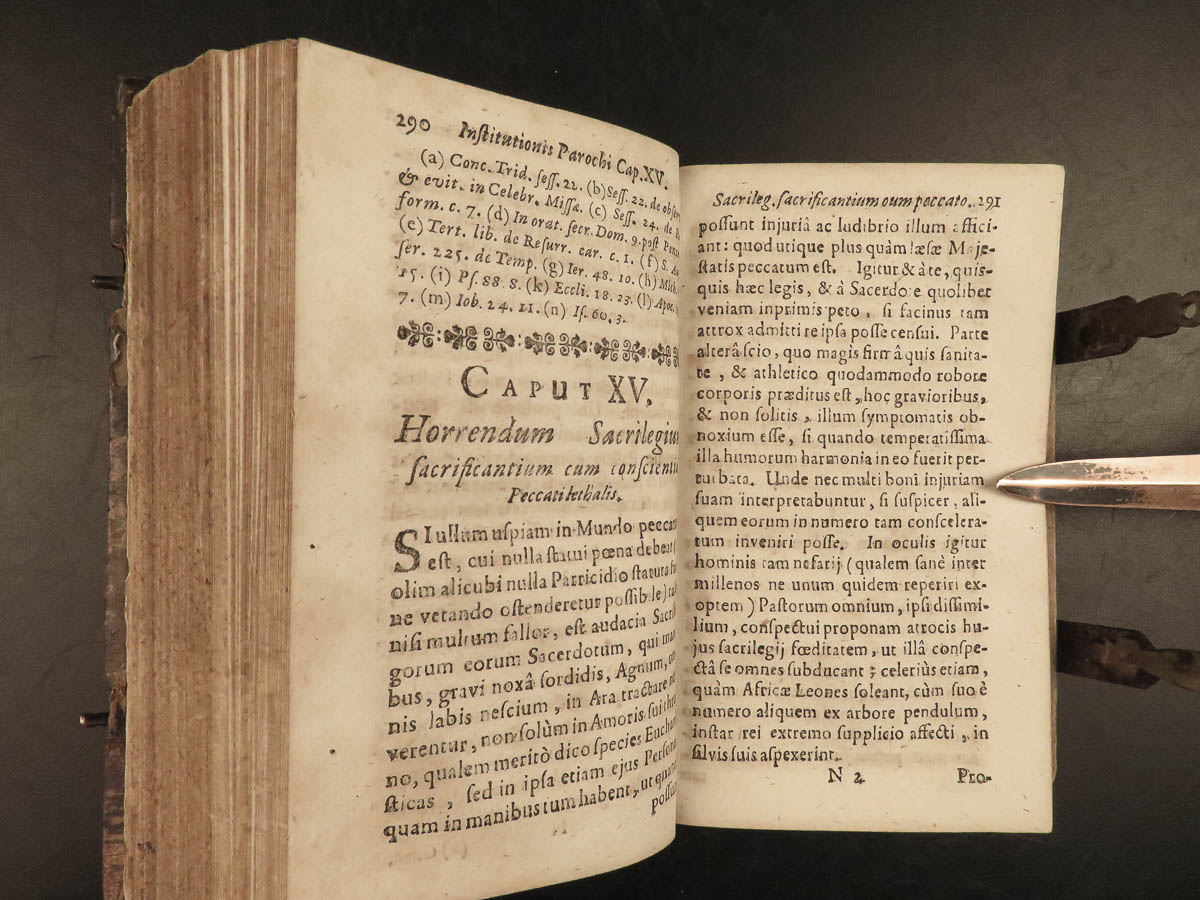 290 Inſtitutionis Parochi Cap.XV.
(a) Conc. Trid. ſeſſ. 22. (b) Seſſ. 22. de obſer
& evit. in Celebr. Miſſæ. (c) Seſſ. 24. de
form. c. 7. (d) In orat. ſecr. Dom. 9. poſt
(e) Tert. lib. de Reſurr. car. c. 1. (f) S.
ſer. 225. de Temp. (g) Ier. 48. 10. (h) Mich.
15. (i) Pſ. 88. 8. (k) Eccli. 18. 23. (l) Apoc.
7. (m) Iob. 24. 11. (n) Iſ. 60. 3.
CAPUT XV.
Horrendum Sacrilegium
ſacrificantium cum conſcientia
Peccati lethalis.
SI ullum uſpiam in Mundo
eſt, cui nulla ſtatui pœna debeat
olim alicubi nulla Parricidio
ne vetando oſtenderetur poſſibile)
niſi multum fallor, eſt audacia
gorum eorum Sacerdotum, qui
bus, gravi noxâ ſordidis, Agnum,
nis labis neſcium, in Ara tractare
verentur, non ſolùm in Amoris ſui
no, qualem meritò dico ſpecies
ſticas, ſed in ipſa etiam ejus
quam in manibus ſuum habent, ut
Sacrileg. ſacrificantium oum poccato. 291
poſſunt injuriâ ac ludibrio illum affici-
ant: quod utique plus quàm læſæ Maje-
ſtatis peccatum eſt. Igitur & à te, quis-
quis hæc legis, & à Sacerdote quolibet
veniam inprimis peto, ſi facinus tam
attrox admitti re ipſa poſſe cenſui. Parte
alterâ ſcio, quo magis firmâ quis ſanita-
te, & athletico quodammodo robore
corporis præditus eſt, hoc gravioribus,
& non ſolitis, illum ſymptomatis ob-
noxium eſſe, ſi quando temperatiſſima
illa humorum harmonia in eo fuerit per-
turbata. Unde nec multi boni injuriam
ſuam interpretabuntur, ſi ſuspicer, ali-
quem eorum in numero tam conſcelera-
tum inveniri poſſe. In oculis igitur
hominis tam nefarij (qualem ſanè inter
millenos ne unum quidem reperiri ex-
optem) Paſtorum omnium, ipſi diſſimi-
lium, conſpectui proponam atrocis hu-
jus ſacrilegij fœditatem, ut illâ conſpe-
ctâ ſe omnes ſubducant; celeriùs etiam,
quàm Africæ Leones ſoleant, cùm ſuo è
numero aliquem ex arbore pendulum,
inſtar rei extremo ſupplicio affecti, in
ſilvis ſuis aſpexerint.
N 2 Pro-